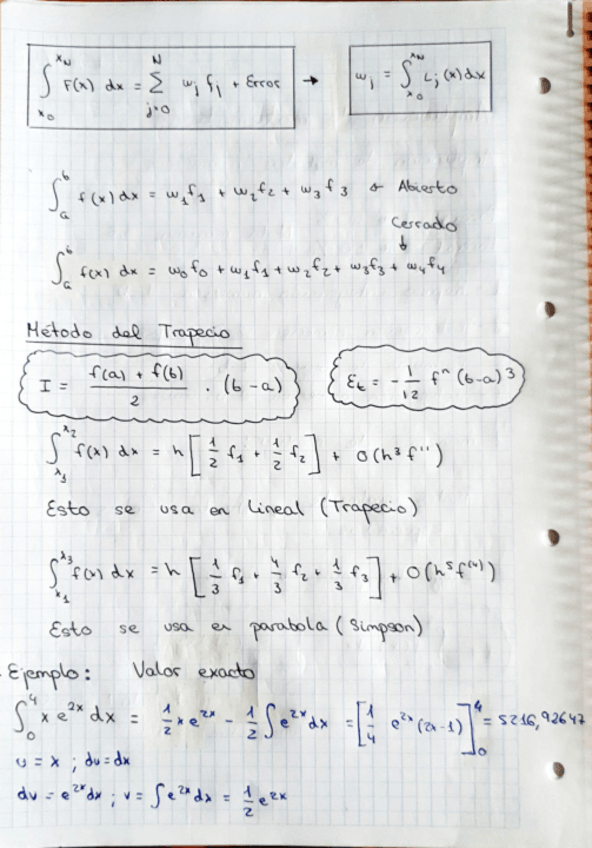 ∫_{x_0}^{x_N} F(x) dx = ∑_{j=0}^{N} w_j f_j + Error → w_j = ∫_{x_0}^{x_N} L_j(x) dx
∫_a^b f(x) dx = w_1 f_1 + w_2 f_2 + w_3 f_3 ← Abierto
Cerrado
↓
∫_a^b f(x) dx = w_0 f_0 + w_1 f_1 + w_2 f_2 + w_3 f_3 + w_4 f_4
Método del Trapecio
I = (f(a) + f(b))/2 · (b - a)
E_t = - 1/12 f'' (b-a)^3
∫_{x_1}^{x_2} f(x) dx = h [1/2 f_1 + 1/2 f_2] + O(h^3 f'')
Esto se usa en Lineal (Trapecio)
∫_{x_1}^{x_3} f(x) dx = h [1/3 f_1 + 4/3 f_2 + 1/3 f_3] + O(h^5 f^{(4)})
Esto se usa en parabola (Simpson)
- Ejemplo: Valor exacto
∫_0^4 x e^{2x} dx = 1/2 x e^{2x} - 1/2 ∫ e^{2x} dx = [1/4 e^{2x} (2x-1)]_0^4 = 5216,92647
u = x ; du = dx
dv = e^{2x} dx ; v = ∫ e^{2x} dx = 1/2 e^{2x}